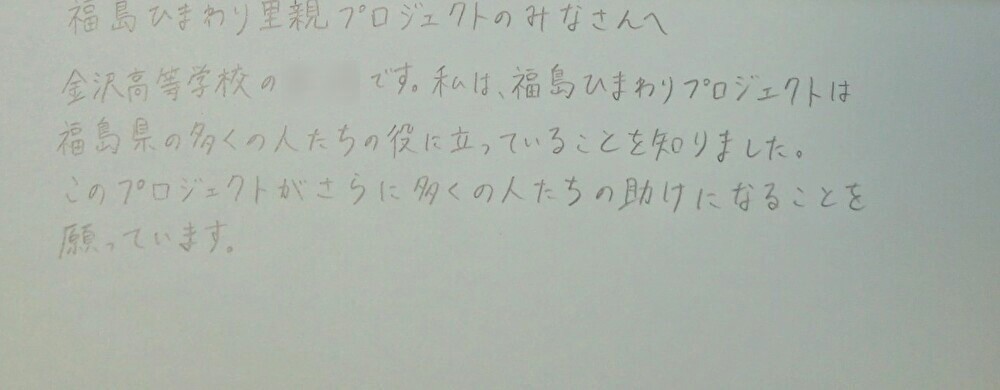 福島ひまわり里親プロジェクトのみなさんへ
金沢高等学校の です。私は、福島ひまわりプロジェクトは
福島県の多くの人たちの役に立っていることを知りました。
このプロジェクトがさらに多くの人たちの助けになることを
願っています。